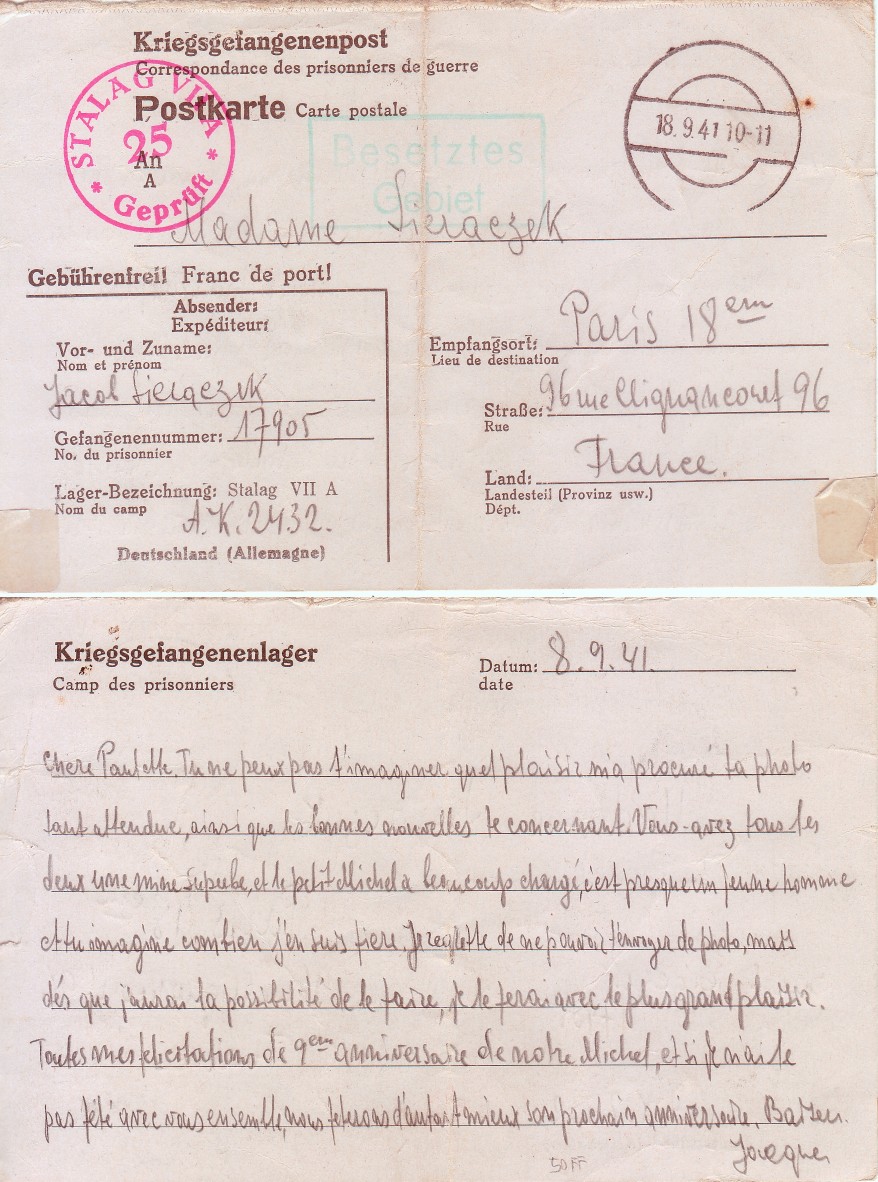 Kriegsgefangenenpost
Correspondance des prisonniers de guerre
Postkarte Carte postale
STALAG VII A
25
Geprüft
An
A
Besetztes
Gebiet
18.9.41 10-11
Madame Sieraczek
Gebührenfrei! Franc de port!
Absender:
Expéditeur:
Vor- und Zuname:
Nom et prénom
Jacob Sieraczek
Gefangenennummer: 17905
No. du prisonnier
Lager-Bezeichnung: Stalag VII A
Nom du camp
A.K. 2432.
Deutschland (Allemagne)
Empfangsort: Paris 18em
Lieu de destination
Straße: 96 rue Clignancourt 96
Rue
Land: France.
Landesteil (Provinz usw.)
Dépt.
Kriegsgefangenenlager
Camp des prisonniers
Datum: 8.9.41.
date
Chere Paulette. Tu ne peux pas t'imaginer quel plaisir m'a procuré ta photo
tant attendue, ainsi que les bonnes nouvelles te concernant. Vous-avez tous les
deux une mine superbe, et le petit Michel a beaucoup changé, c'est presque un jeune homme
et tu imagine combien j'en suis fiere. Je regrette de ne pouvoir t'envoyer de photo, mais
dés que j'aurai la possibilité de le faire, je le ferai avec le plus grand plaisir.
Toutes mes felicitations de 9em anniversaire de notre Michel, et si je n'ai le
pas fété avec vous ensemble, nous feterons d'autant mieux son prochain anniversaire.
Jacques
50 FF